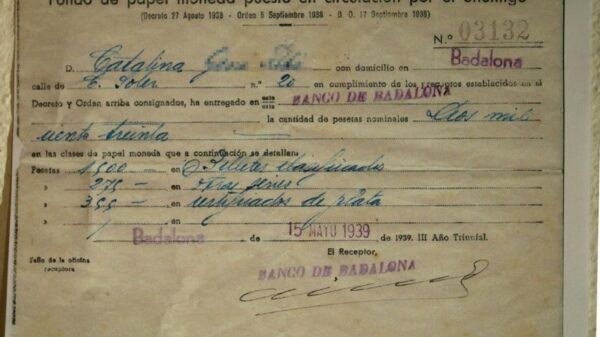 Fondo de papel moneda puesto en circulación por el enemigo
(Decreto 27 Agosto 1938 - Orden 5 Septiembre 1938 - B. O. 17 Septiembre 1938)
N.º 03132
D. Catalina con domicilio en Badalona
calle de E. Soler n.º 20 en cumplimiento de los preceptos establecidos en el
Decreto y Orden arriba consignados, ha entregado en BANCO DE BADALONA
la cantidad de pesetas nominales Dos mil
ciento treinta
en las clases de papel moneda que a continuación se detallan:
Pesetas 1,500 — en Billetes clasificados
275 — en otras series
355 — en certificados de plata
en
Badalona de 15 MAYO 1939 de 1939. III Año Triunfal.
Sello de la oficina
receptora
El Receptor,
BANCO DE BADALONA